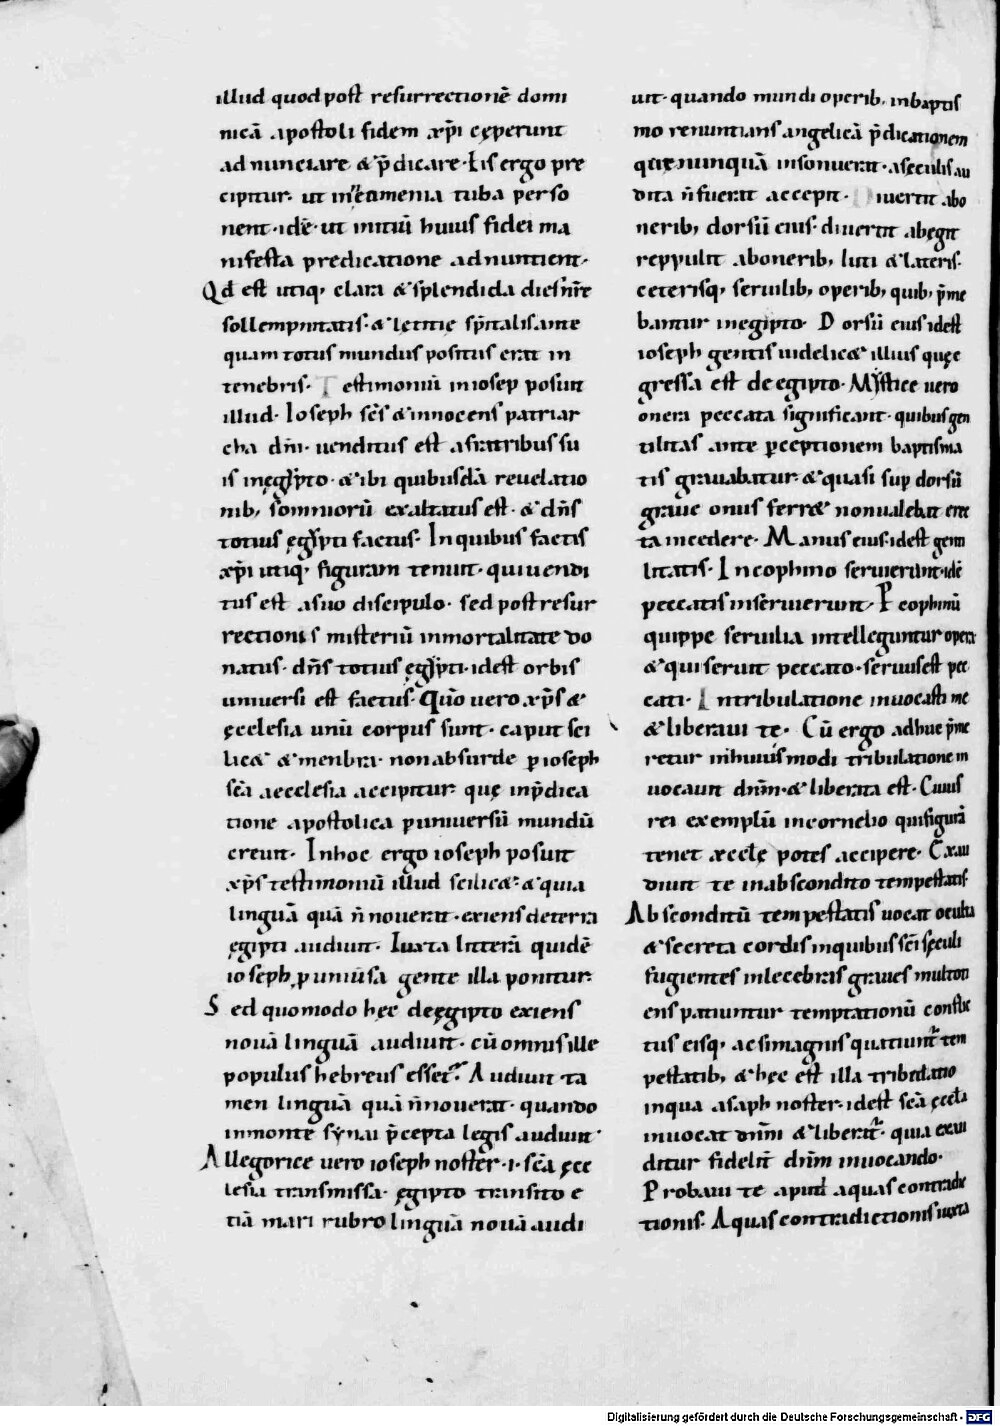 illud quod post resurrectionē domi
nicā apostoli fidem xp̄i cęperunt
adnunciare & p̄dicare. His ergo pre
cipitur. ut in neomenia tuba perso
nent. idē. ut initiū huius fidei ma
nifesta predicatione adnuntient.
Qd̄ est utiq, clara & splendida dies nr̄e
sollempnitatis. & lętitię sp̄italis ante
quam totus mundus positus erat in
tenebris. Testimoniū in iosep posuit
illud. Ioseph sc̄s & innocens patriar
cha dn̄i. uenditus est a fratribus su
is in ęgẏpto. & ibi quibusdā reuelatio
nib, somniorū exaltatus est. & dn̄s
totius ęgẏpti factus. In quibus factis
xp̄i utiq, figuram tenuit. qui uendi
tus est a suo discipulo. sed post resur
rectionis misteriū inmortalitate do
natus. dn̄s totius ęgẏpti. idest orbis
uniuersi est factus. Qūo uero xp̄s &
ęcclesia unū corpus sunt. caput sci
lic& & menbra. non absurde p̱ ioseph
sc̄a aecclesia accipitur. quę in p̄dica
tione apostolica p̱ uniuersū mundū
creuit. In hoc ergo ioseph posuit
xp̄s testimoniū illud scilic&. & quia
linguā quā n̄ nouerat. exiens de terra
ęgipti audiuit. Iuxta litterā quidē
ioseph p̱ uniuersa gente illa ponitur.
Sed quomodo hęc de ęgipto exiens
nouā linguā audiuit. cū omnis ille
populus hebreus esset? Audiuit ta
men linguā quā n̄ nouerat. quando
in monte sẏnai p̄cepta legis audiuit.
Allegorice uero ioseph noster .i. sc̄a ęcc
lesia transmissa. ęgipto transito e
tiā mari rubro linguā nouā audi
uit. quando mundi operib, in baptis
mo renuntians angelicā p̄dicationem
quę nunquā insonuerat. a seculis au
dita n̄ fuerat accepit. Diuertit abo
nerib, dorsū eius. diuertit abegit
reppulit ab onerib, luti & lateris.
ceterisq, seruilib, operib, quib, p̄me
bantur in egipto. Dorsū eius idest
ioseph gentis uidelic& illius quę e
gressa est de egipto. Mẏstice uero
onera peccata significant. quibus gen
tilitas ante p̱ceptionem baptisma
tis grauabatur. & quasi sup dorsū
graue onus ferr& non ualebat erec
ta incedere. Manus eius. idest genti
litatis. In cophino seruierunt. idē
peccatis inseruierunt. P cophinū
quippe seruilia intelleguntur opera
& qui seruit peccato. seruus est pec
cati. In tribulatione inuocasti me
& liberaui te. Cū ergo adhuc p̄me
retur in huiusmodi tribulatione in
uocauit dn̄m. & liberata est. Cuius
rei exemplū in cornelio qui figurā
tenet æcclę potes accipere. Exau
diuit te in abscondito tempestatis
Absconditū tempestatis uocat oculta
& secreta cordis in quibus sc̄i sęculi
fugientes inlecebris graues multoti
ens patiuntur temptationū conflic
tus eisq, ac si magnis quatiunt̃ tem
pestatib, & hęc est illa tribulatio
in qua asaph noster. idest sc̄a ęccl̄a
inuocat dn̄m & liberat̃. quia exau
ditur fidelit̄ dn̄m inuocando.
Probaui te aput aquas contradic
tionis. Aquas contradictionis iuxta
Digitalisierung gefördert durch die Deutsche Forschungsgemeinschaft - DFG